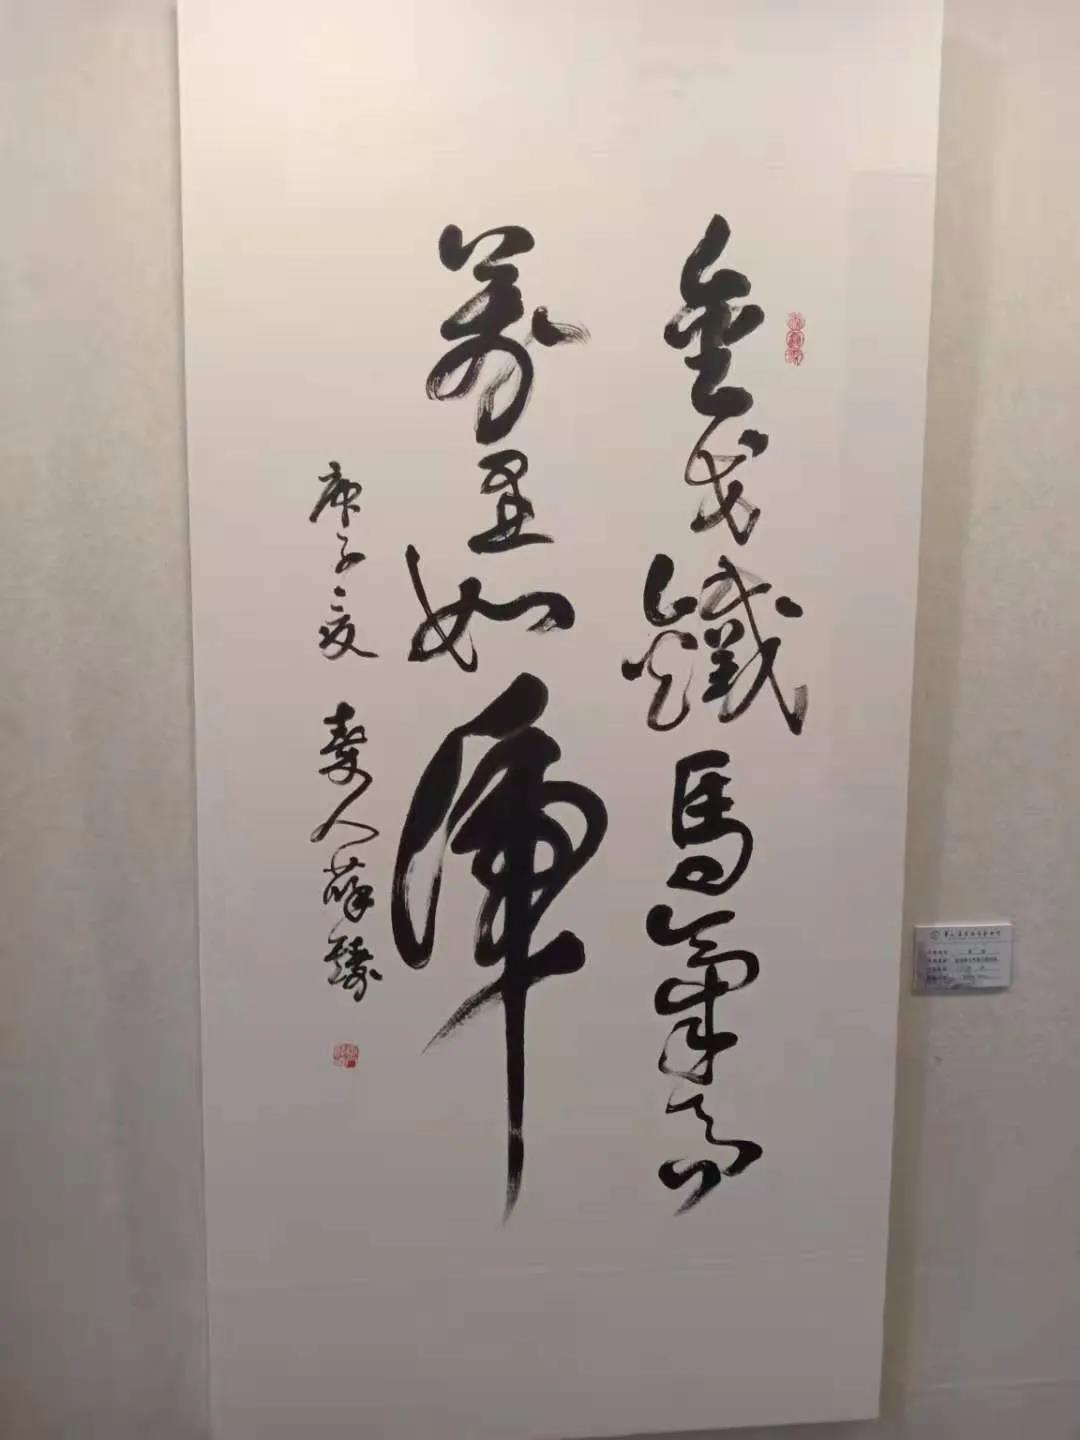 金戈鐵馬氣吞
萬里如虎
庚子夏 人薛臻